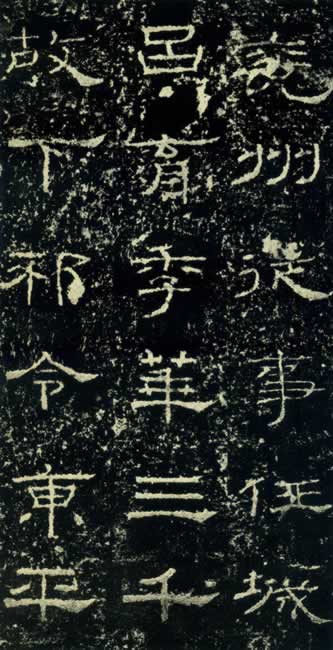 兗州從事任城
呂育季華三千
故下邳令東平